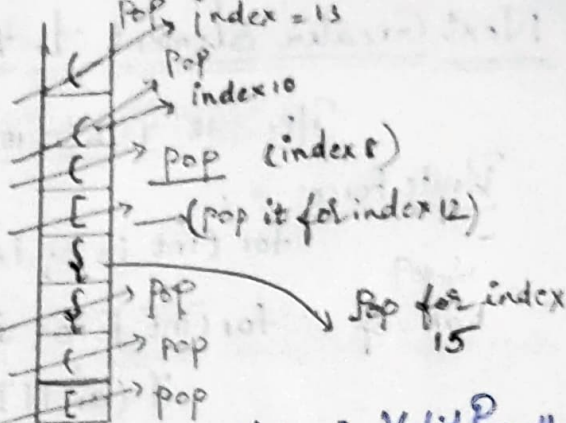 pop index = 13
(
pop
( index 10
( pop (index 8)
[ (pop it for index 12)
{
{ pop pop for index
( pop 15
[ pop